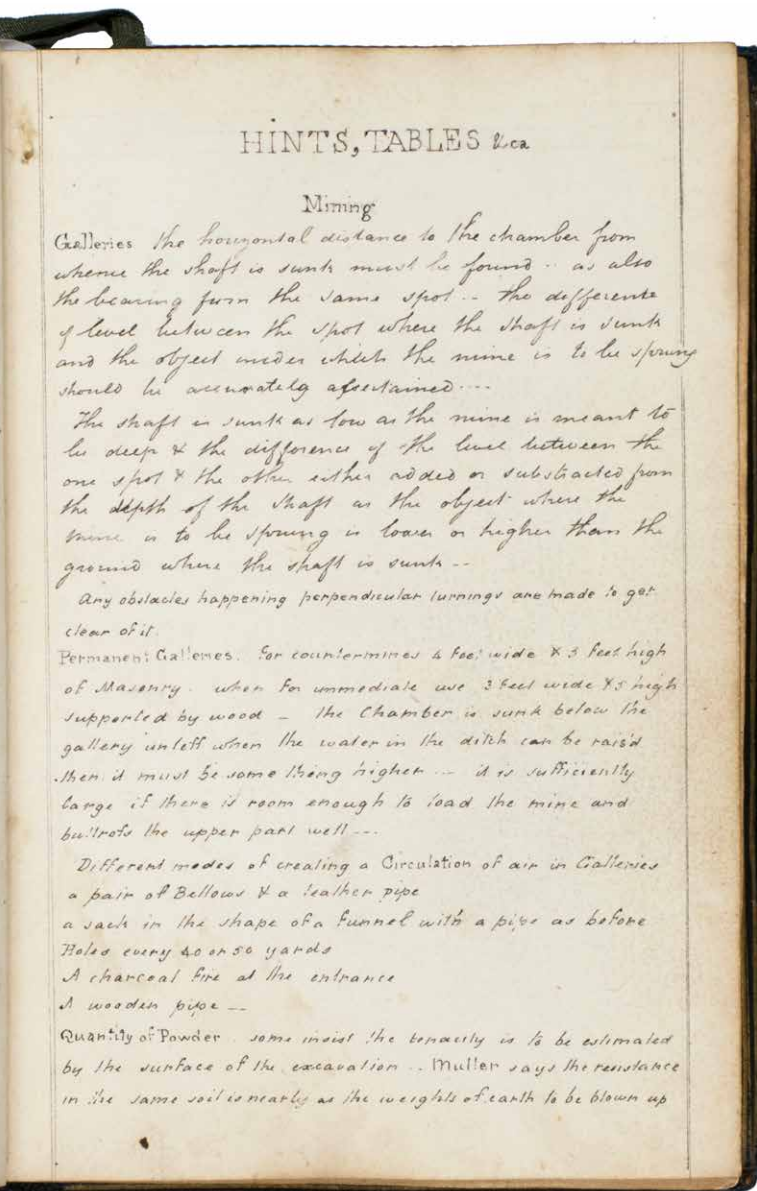 HINTS, TABLES &ca
Mining
Galleries the horizontal distance to the chamber from
whence the shaft is sunk must be found .. as also
the bearing from the same spot .. the difference
of level between the spot where the shaft is sunk
and the object under which the mine is to be sprung
should be accurately assertained ....
The shaft is sunk as low as the mine is meant to
be deep & the difference of the level between the
one spot & the other either added or substracted from
the depth of the shaft as the object where the
mine is to be sprung is lower or higher than the
ground where the shaft is sunk --
Any obstacles happening perpendicular turnings are made to get
clear of it.
Permanent Galleries. for countermines 4 feet wide & 5 feet high
of Masonry. when for immediate use 3 feet wide & 5 high
supported by wood - the Chamber is sunk below the
gallery unless when the water in the ditch can be rais'd
then it must be some thing higher --- it is sufficiently
large if there is room enough to load the mine and
buttross the upper part well ---
Different modes of creating a Circulation of air in Galleries
a pair of Bellows & a leather pipe
a sack in the shape of a funnel with a pipe as before
Holes every 40 or 50 yards
A charcoal fire at the entrance
A wooden pipe --
Quantity of Powder some insist the tenacity is to be estimated
by the surface of the excavation .. Muller says the resistance
in the same soil is nearly as the weights of earth to be blown up